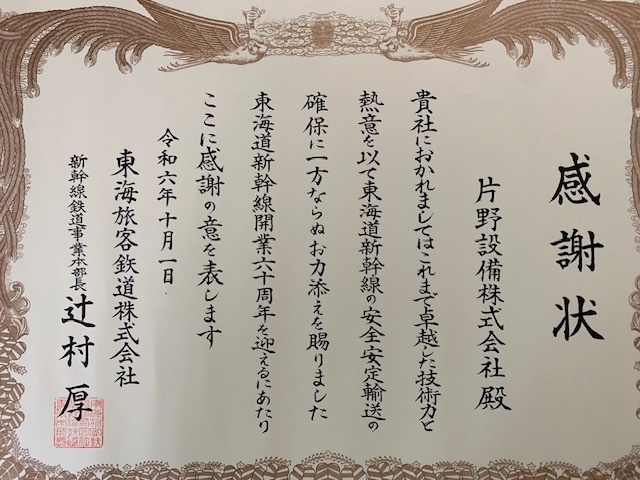 感謝状
片野設備株式会社 殿
貴社におかれましてはこれまで卓越した技術力と
熱意を以て東海道新幹線の安全安定輸送の
確保に一方ならぬお力添えを賜りました
東海道新幹線開業六十周年を迎えるにあたり
ここに感謝の意を表します
令和六年十月一日
東海旅客鉄道株式会社
新幹線鉄道事業本部長 辻村 厚